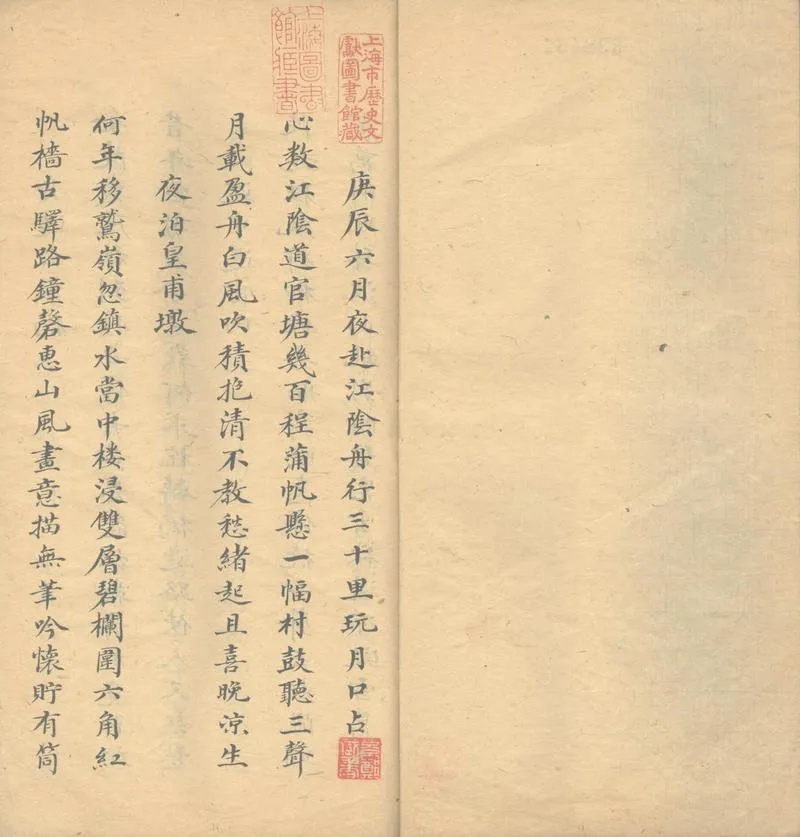 上海市歷史文
獻圖書館藏
上海圖書
館藏書
庚辰六月夜赴江陰舟行三十里玩月口占
心数江陰道官塘幾百程蒲帆懸一幅村鼓聽三聲
月載盈舟白風吹積抱清不教愁緒起且喜晚凉生
夜泊皇甫墩
何年移鷲嶺忽鎮水當中楼浸雙層碧欄圍六角紅
帆檣古驛路鐘磬惠山風畫意描無筆吟懷貯有筒